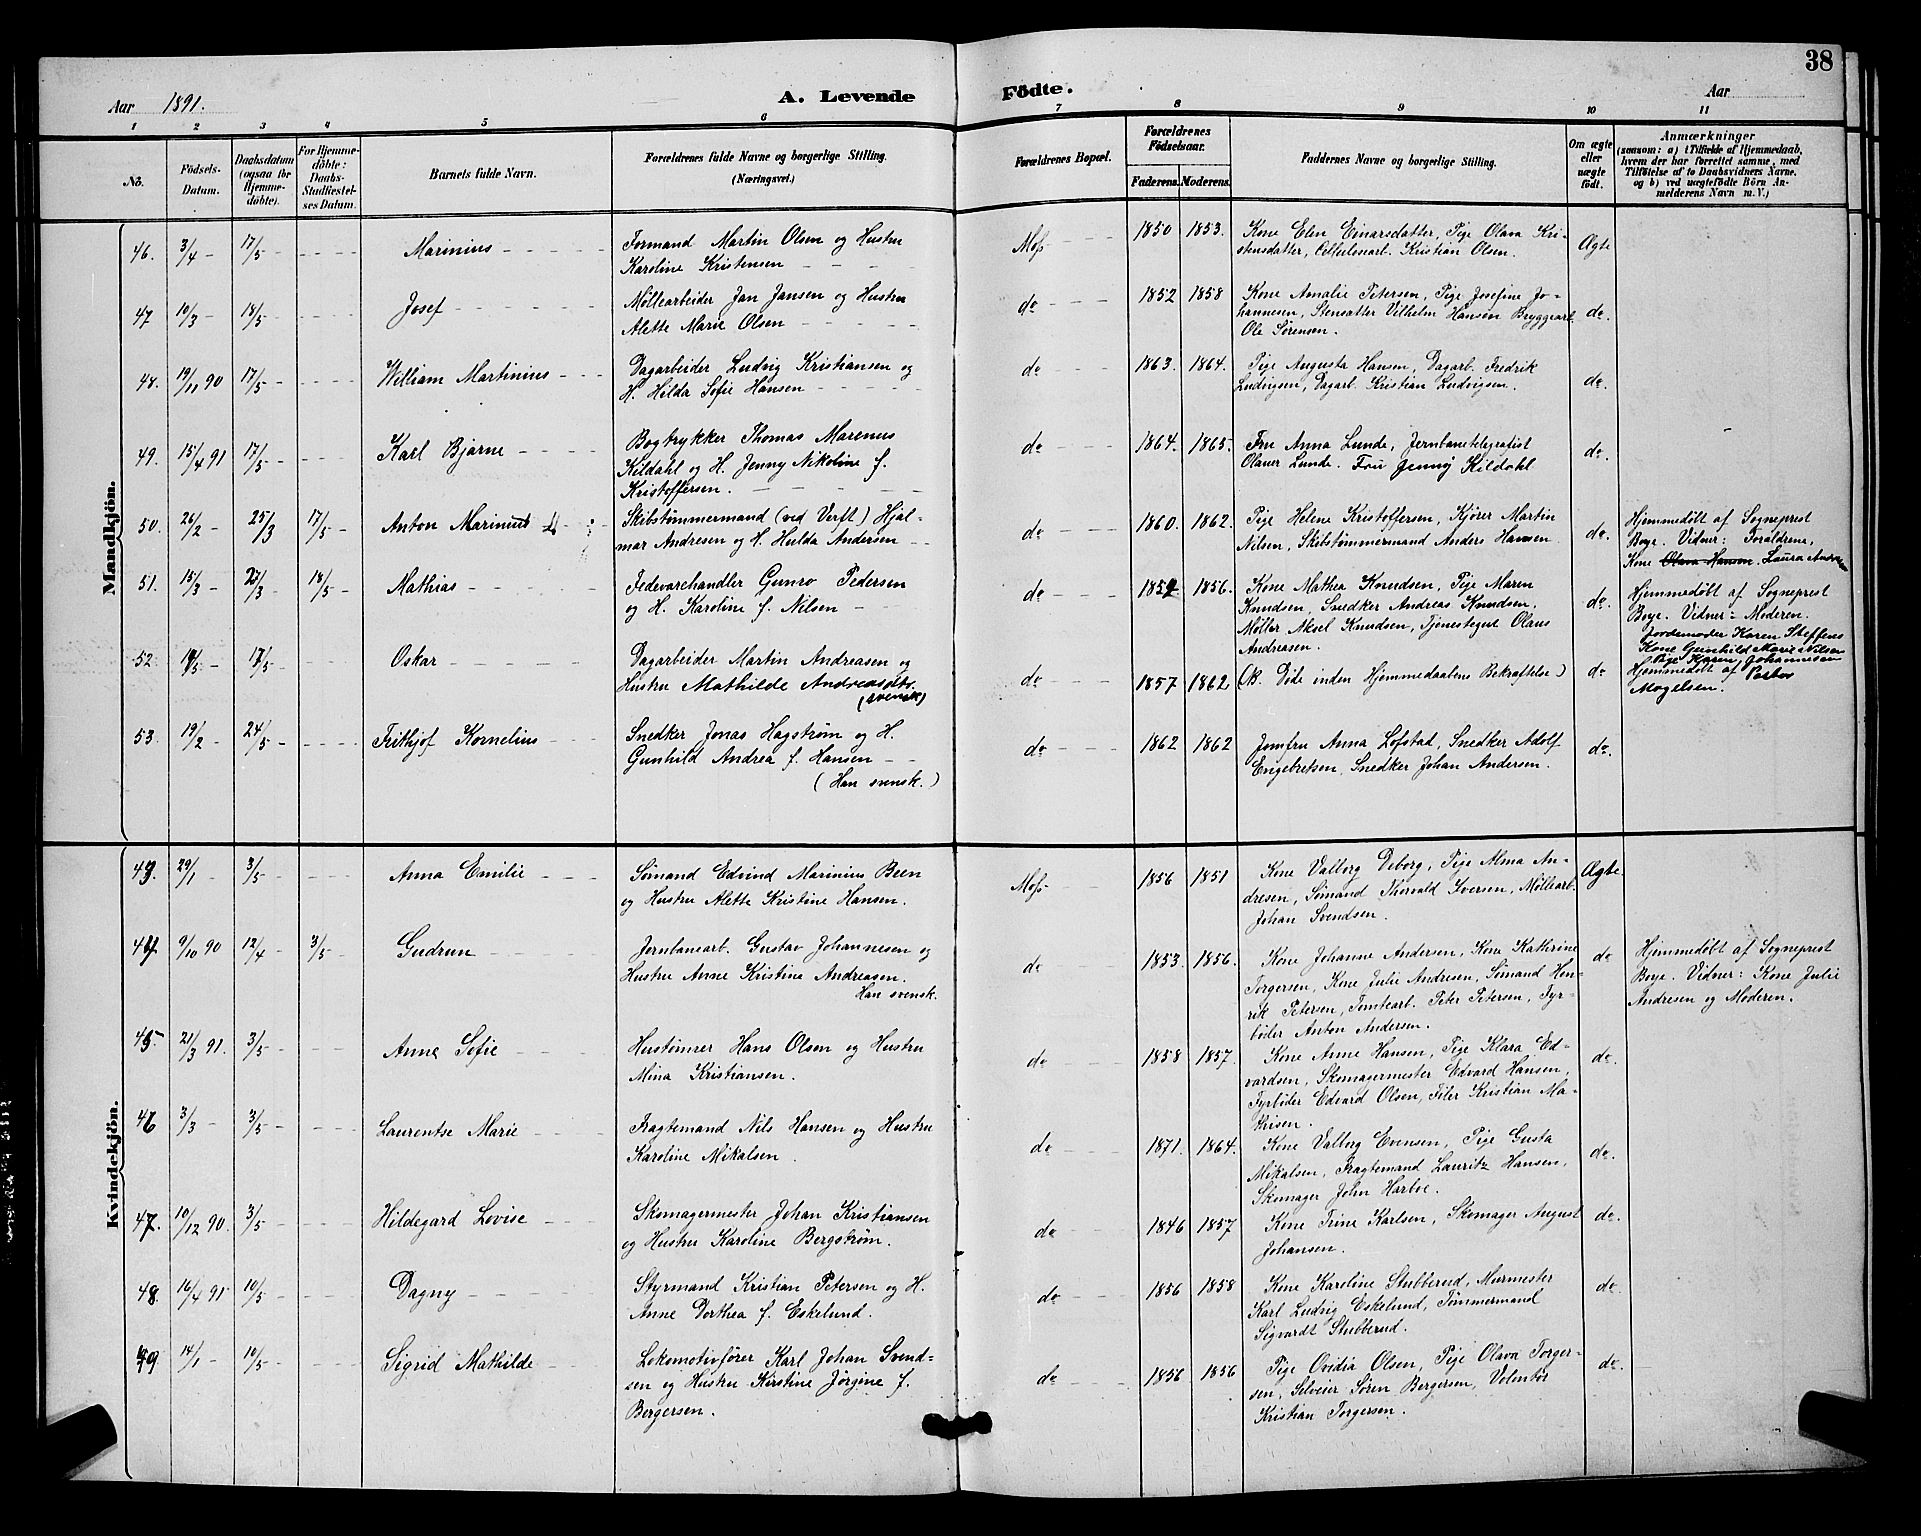 38
Aar 1891.
A. Levende Födte.
Aar
1 2 3 4 5 6 7 8 9 10 11
No.
Födsels-
Datum.
Daabsdatum
(ogsaa for
Hjemme-
døbte).
For Hjemme-
døbte:
Daabs-
Stadfæstel-
ses Datum.
Barnets fulde Navn.
Forældrenes fulde Navne og borgerlige Stilling.
(Næringsvei.)
Forældrenes Bopæl.
Forældrenes
Födselsaar.
Faderens. Moderens.
Faddernes Navne og borgerlige Stilling.
Om ægte
eller
uægte
født.
Anmærkninger
(saasom: a) i Tilfælde af Hjemmedaab,
hvem der har forrettet samme, med
Tilföielse af to Daabsvidners Navne,
og b) ved uægtefödte Börn An-
melderens Navn m. V.)
Mandkjön.
46. 3/4 - 17/5 - Marinius
Formand Martin Olsen og Hustru
Karoline Kristensen
Moss 1850 1853.
Kone Elen Einarsdatter, Pige Olava Kri-
stensdatter, Cellulosearb. Kristian Olsen.
Ægte
47 10/3 - 18/5 - Josef
Møllearbeider Jan Jansen og Hustru
Alette Marie Olsen
do 1852 1858
Kone Amalie Petersen, Pige Josefine Jo-
hannesen, Stensatter Vilhelm Hansen Bryggearb.
Ole Sørensen.
do.
48. 19/11 90 17/5 - William Martinius
Dagarbeider Ludvig Kristiansen og
H. Hilda Sofie Hansen
do 1863. 1864.
Pige Augusta Hansen, Dagarb. Fredrik
Ludvigsen, Dagarb. Kristian Ludvigsen.
do.
49. 15/4 91 17/5 - Karl Bjarne
Bogtrykker Thomas Marenus
Kildahl og H. Jenny Nikoline f.
Kristoffersen.
do 1864. 1865.
Fru Anna Lunde, Jernbanetelegrafist
Olauer Lunde. Fru Jenny Kildahl
do.
50. 26/2 - 25/3 17/5 - Anton Marinus
Skibstømmermand (ved Verft) Hjal-
mar Andresen og H. Hulda Andersen
do 1860. 1862.
Pige Helene Kristoffersen, Kjører Martin
Nilsen, Skibstømmermand Anders Hansen
do.
Hjemmedøbt af Sogneprest
Boye. Vidner: Foraldrene,
Kone Olava Hansen. Laura
51. 15/3 - 23/3 18/5 - Mathias
Fedevarehandler Gunro Pedersen
og H. Karoline f. Nilsen
do 1854 1856.
Kone Mathea Knudsen, Pige Maren
Knudsen, Snedker Andreas Knudsen,
Møller Aksel Knudsen, Tjenestegut Olaus
Andreasen.
do.
Hjemmedøbt af Sogneprest
Boye. Vidner: Moderen.
Jordemoder Karen Steffens
Kone Gunhild Marie Nilsen
Pige Karen Johannesen
52 14/5 - 17/5 - Oskar
Dagarbeider Martin Andreasen og
Hustru Mathilde Andreasdtr.
(svensk)
do 1857 1862
(N. Døde inden Hjemmedaabens Bekraftelse)
do
Hjemmedøbt af Pastor
Mogelsen.
53. 19/2 - 24/5 - Frithjof Kornelius
Snedker Jonas Hagstrøm og H.
Gunhild Andrea f. Hansen
(Han svensk.)
do 1862 1862
Jomfru Anna Lofstad, Snedker Adolf
Engebretsen, Snedker Johan Andersen.
do.
Kvindekjön.
43. 29/1 3/5 - Anna Emilie
Sømand Edvind Marinius Been
og Hustru Alette Kristine Hansen.
Moss 1856 1851
Kone Valborg Deborg, Pige Alma An-
dresen, Sømand Thorvald Iversen, Møllearb.
Johan Svendsen.
Ægte.
44 9/10 90 12/4 - 3/5 - Gudrun
Jernbanearb. Gustav Johannesen og
Hustru Anne Kristine Andreasen.
Han svensk.
do 1853. 1856.
Kone Johanne Andersen, Kone Kathrine
Torgersen, Kone Julie Andresen, Sømand Hen-
rik Petersen, Tomtearb. Peter Petersen, Fyr-
bøder Anton Andersen.
do
Hjemmedøbt af Sogneprest
Boye. Vidner: Kone Julie
Andresen og Moderen.
45. 21/3 91. 3/5 - Anne Sofie
Hustømrer Hans Olsen og Hustru
Mina Kristiansen.
do 1858 1857.
Kone Anne Hansen, Pige Klara Ed-
vardsen, Skomagermester Edvard Hansen,
Fyrbøder Edvard Olsen, Filer Kristian Ma-
thisen.
do.
46 3/3 - 3/5 - Laurentse Marie
Fragtemand Nils Hansen og Hustru
Karoline Mikalsen.
do 1871. 1864.
Kone Valborg Evensen, Pige Gusta
Mikalsen, Fragtemand Lauritz Hansen,
Skomager John Harboe.
do.
47. 10/12 90. 3/5 - Hildegard Lovise
Skomagermester Johan Kristiansen
og Hustru Karoline Bergstrøm.
do 1846 1857
Kone Trine Karlsen, Skomager August
Johansen.
do.
48. 16/4 91 10/5 - Dagny
Styrmand Kristian Petersen og H.
Anne Dorthea f. Eskelund.
do 1856 1858
Kone Karoline Stubberud, Murmester
Karl Ludvig Eskelund, Tømmermand
Sigvardt Stubberud.
do
49 14/1 - 10/5 - Sigrid Mathilde
Lokomotivfører Karl Johan Svend-
sen og Hustru Kirstine Jørgine f.
Bergersen.
do 1856 1856
Pige Ovidia Olsen, Pige Olava Torger-
sen, Selveier Søren Bergersen, Volontør
Kristian Torgersen.
do.